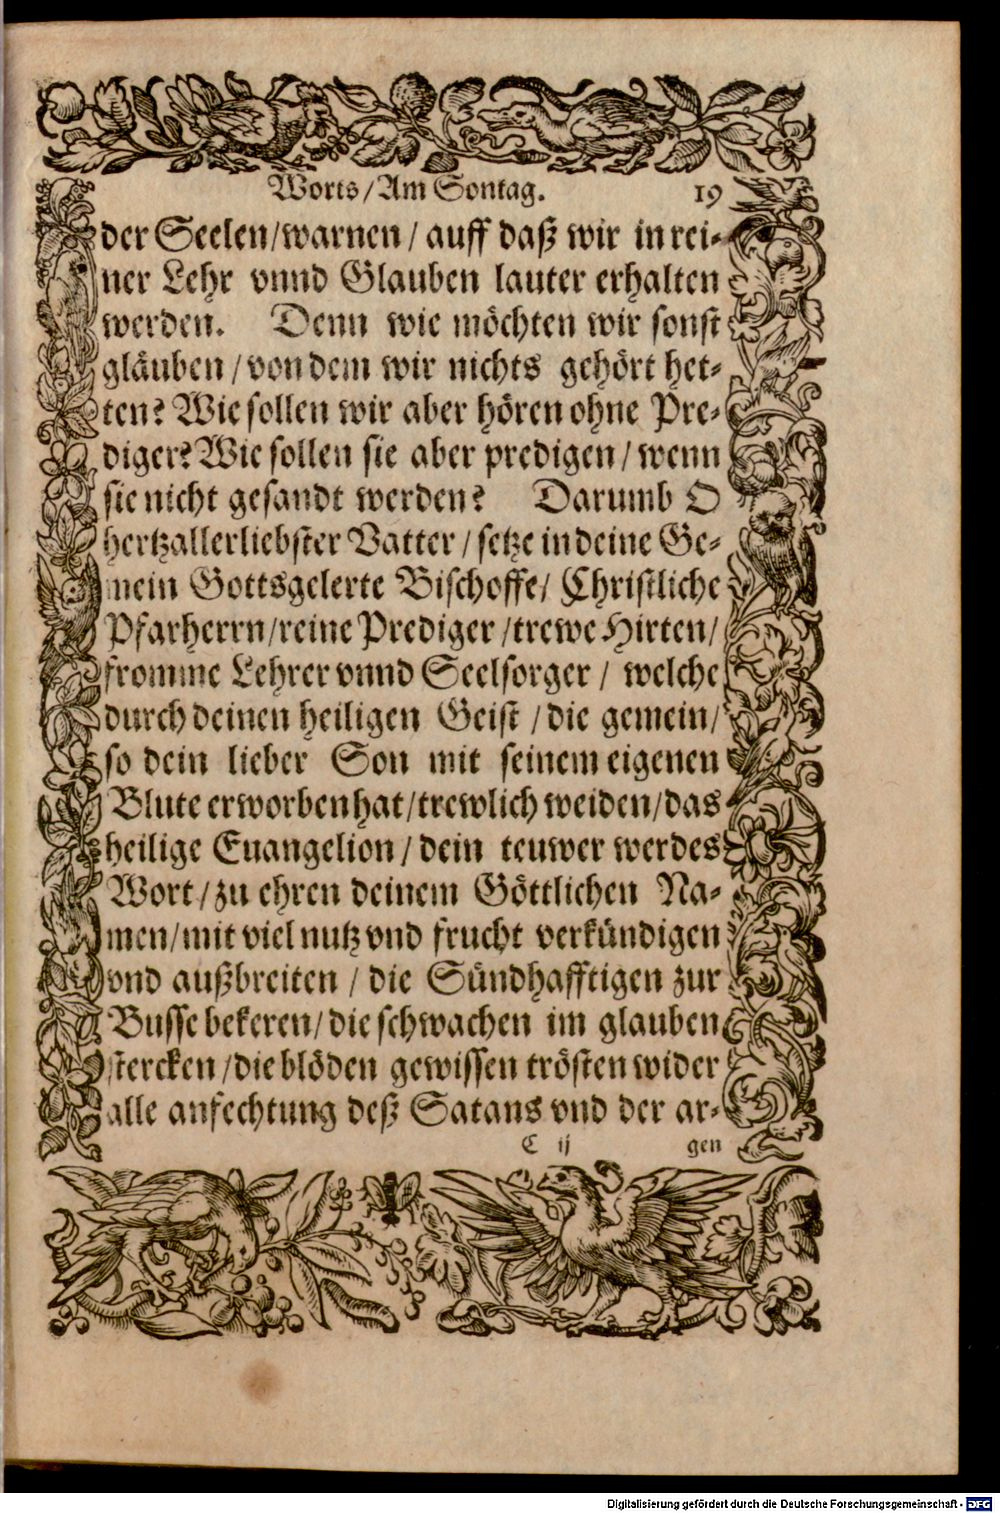 Worts/Am Sontag. 19
der Seelen/warnen/ auff daß wir in rei-
ner Lehr vnnd Glauben lauter erhalten
werden. Denn wie möchten wir sonst
gläuben/von dem wir nichts gehört het-
ten? Wie sollen wir aber hören ohne Pre-
diger? Wie sollen sie aber predigen/wenn
sie nicht gesandt werden? Darumb O
hertzallerliebster Vatter/setze in deine Ge-
mein Gottsgelerte Bischoffe/ Christliche
Pfarherrn/reine Prediger/trewe Hirten/
fromme Lehrer vnnd Seelsorger/ welche
durch deinen heiligen Geist/die gemein/
so dein lieber Son mit seinem eigenen
Blute erworben hat/trewlich weiden/das
heilige Euangelion/dein teuwer werdes
Wort/zu ehren deinem Göttlichen Na-
men/mit viel nutz vnd frucht verkündigen
vnd außbreiten/ die Sündhafftigen zur
Busse bekeren/die schwachen im glauben
stercken/die blöden gewissen trösten wider
alle anfechtung deß Satans vnd der ar-
C ij gen
Digitalisierung gefördert durch die Deutsche Forschungsgemeinschaft - DFG